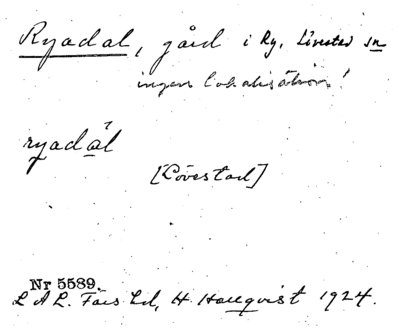 Ryadal, gård i Ry, Lövestad sn
ingen lokalisation!
ryadàl
[Lövestad]
Nr 5589.
L A L. Färs hd, H. Hallqvist 1924.